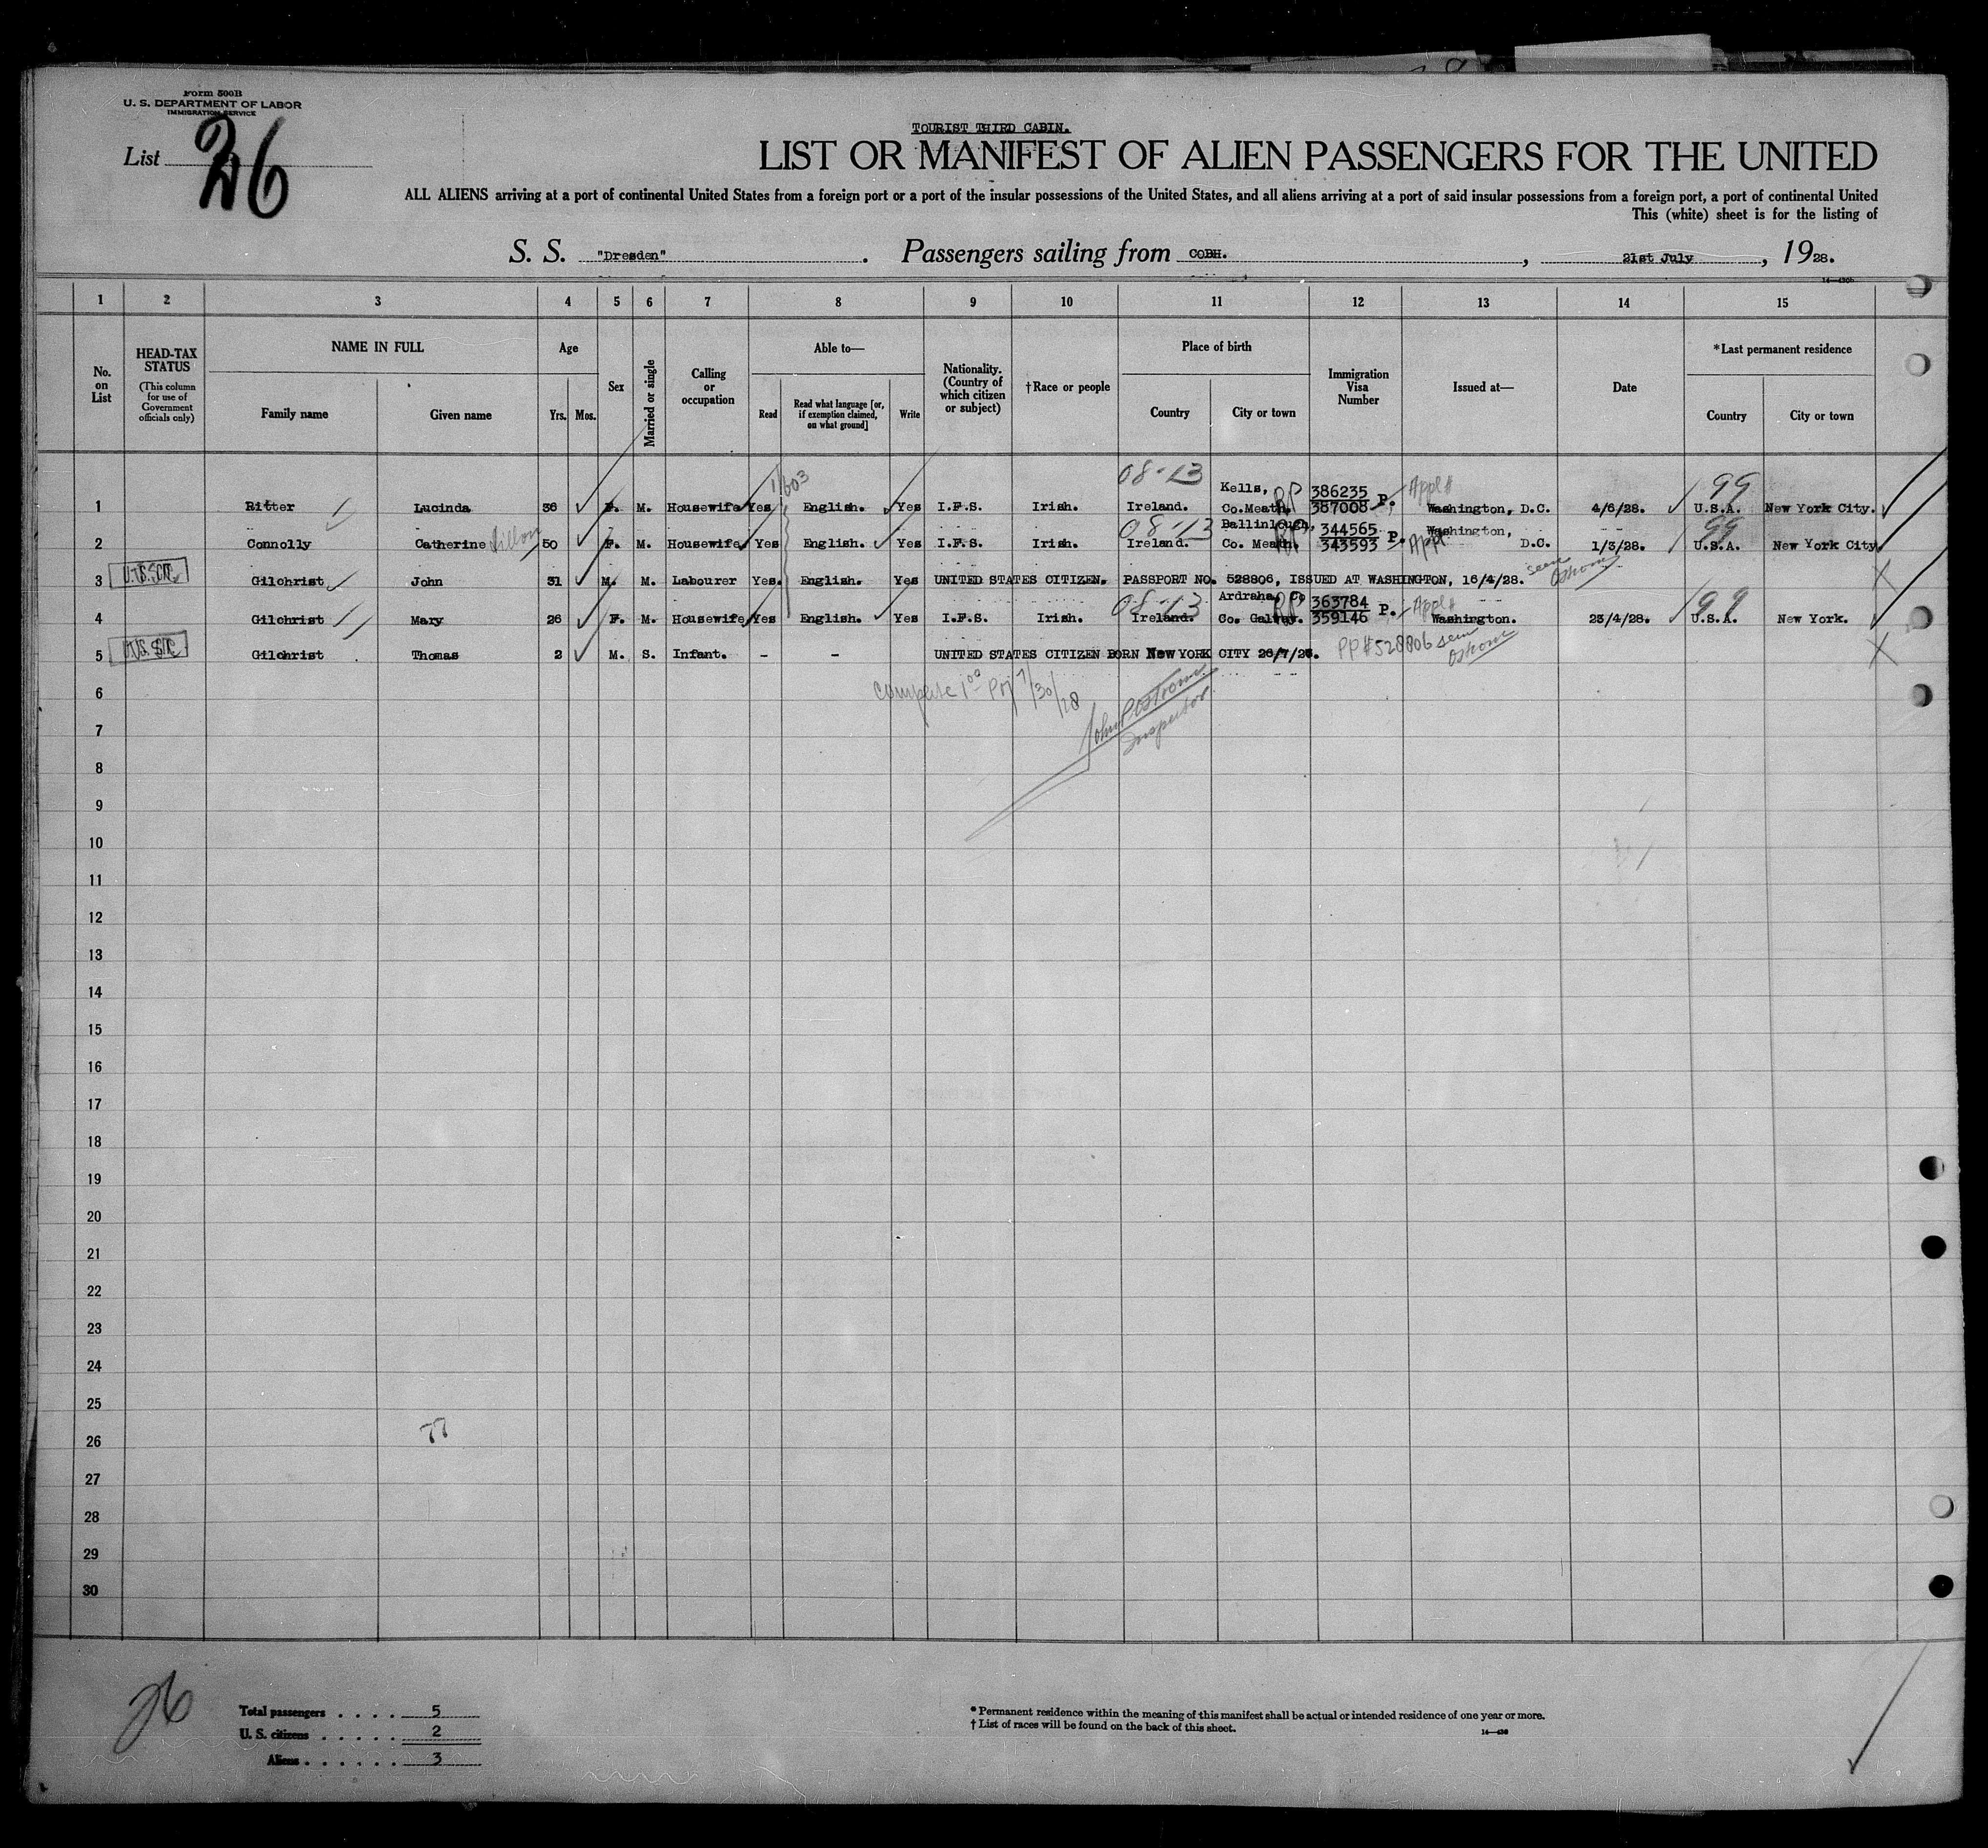 Form 500B
U. S. DEPARTMENT OF LABOR
IMMIGRATION SERVICE
List 26
TOURIST THIRD CABIN.
LIST OR MANIFEST OF ALIEN PASSENGERS FOR THE UNITED
ALL ALIENS arriving at a port of continental United States from a foreign port or a port of the insular possessions of the United States, and all aliens arriving at a port of said insular possessions from a foreign port, a port of continental United
This (white) sheet is for the listing of
S. S. "Dresden". Passengers sailing from COBH., 21st July, 1928.
1 2 3 4 5 6 7 8 9 10 11 12 13 14 15
No. on List
HEAD-TAX STATUS (This column for use of Government officials only)
NAME IN FULL Family name Given name
Age Yrs. Mos.
Sex
Married or single
Calling or occupation
Able to— Read Read what language [or, if exemption claimed, on what ground] Write
Nationality. (Country of which citizen or subject)
†Race or people
Place of birth Country City or town
Immigration Visa Number
Issued at—
Date
*Last permanent residence Country City or town
1 Ritter Lucinda 36 F. M. Housewife Yes English. Yes I.F.S. Irish. 08-13 Ireland. Kells, Co.Meath. RP 386235 387008 P. Appl# Washington, D.C. 4/6/28. 99 U.S.A. New York City.
2 Connolly Catherine Dillon 50 F. M. Housewife Yes English. Yes I.F.S. Irish. 08-13 Ireland. Ballinlough, Co. Meath. RP 344565 343593 P. Appl Washington, D.C. 1/3/28. 99 U.S.A. New York City.
3 U.S. CIT. Gilchrist John 31 M. M. Labourer Yes. English. Yes UNITED STATES CITIZEN. PASSPORT NO. 528806, ISSUED AT WASHINGTON, 16/4/28. seen Ostrom
4 Gilchrist Mary 26 F. M. Housewife Yes English. Yes I.F.S. Irish. 08-13 Ireland. Ardraha, Co Co. Galway. RP 363784 359146 P. Appl# Washington. 23/4/28. 99 U.S.A. New York.
5 Gilchrist Thomas 2 M. S. Infant. - - UNITED STATES CITIZEN BORN New YORK CITY 26/7/26. PP#528806 seen Ostrom
6
7/30/28
Inspector
7
8
9
10
11
12
13
14
15
16
17
18
19
20
21
22
23
24
25
26
27
28
29
30
26
Total passengers . . . . 5
U. S. citizens . . . . . 2
Aliens . . . . . . 3
* Permanent residence within the meaning of this manifest shall be actual or intended residence of one year or more.
† List of races will be found on the back of this sheet.